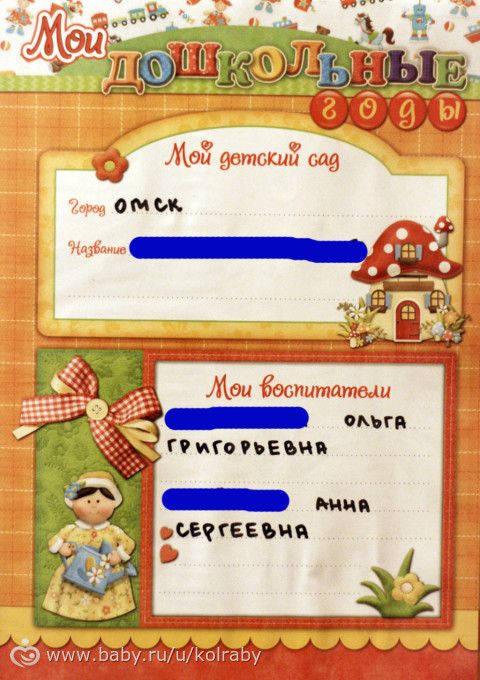 Мои
ДОШКОЛЬНЫЕ
ГОДЫ
Мой детский сад
Город ОМСК
Название
Мои воспитатели
ОЛЬГА
ГРИГОРЬЕВНА
АННА
СЕРГЕЕВНА
www.baby.ru/u/kolraby